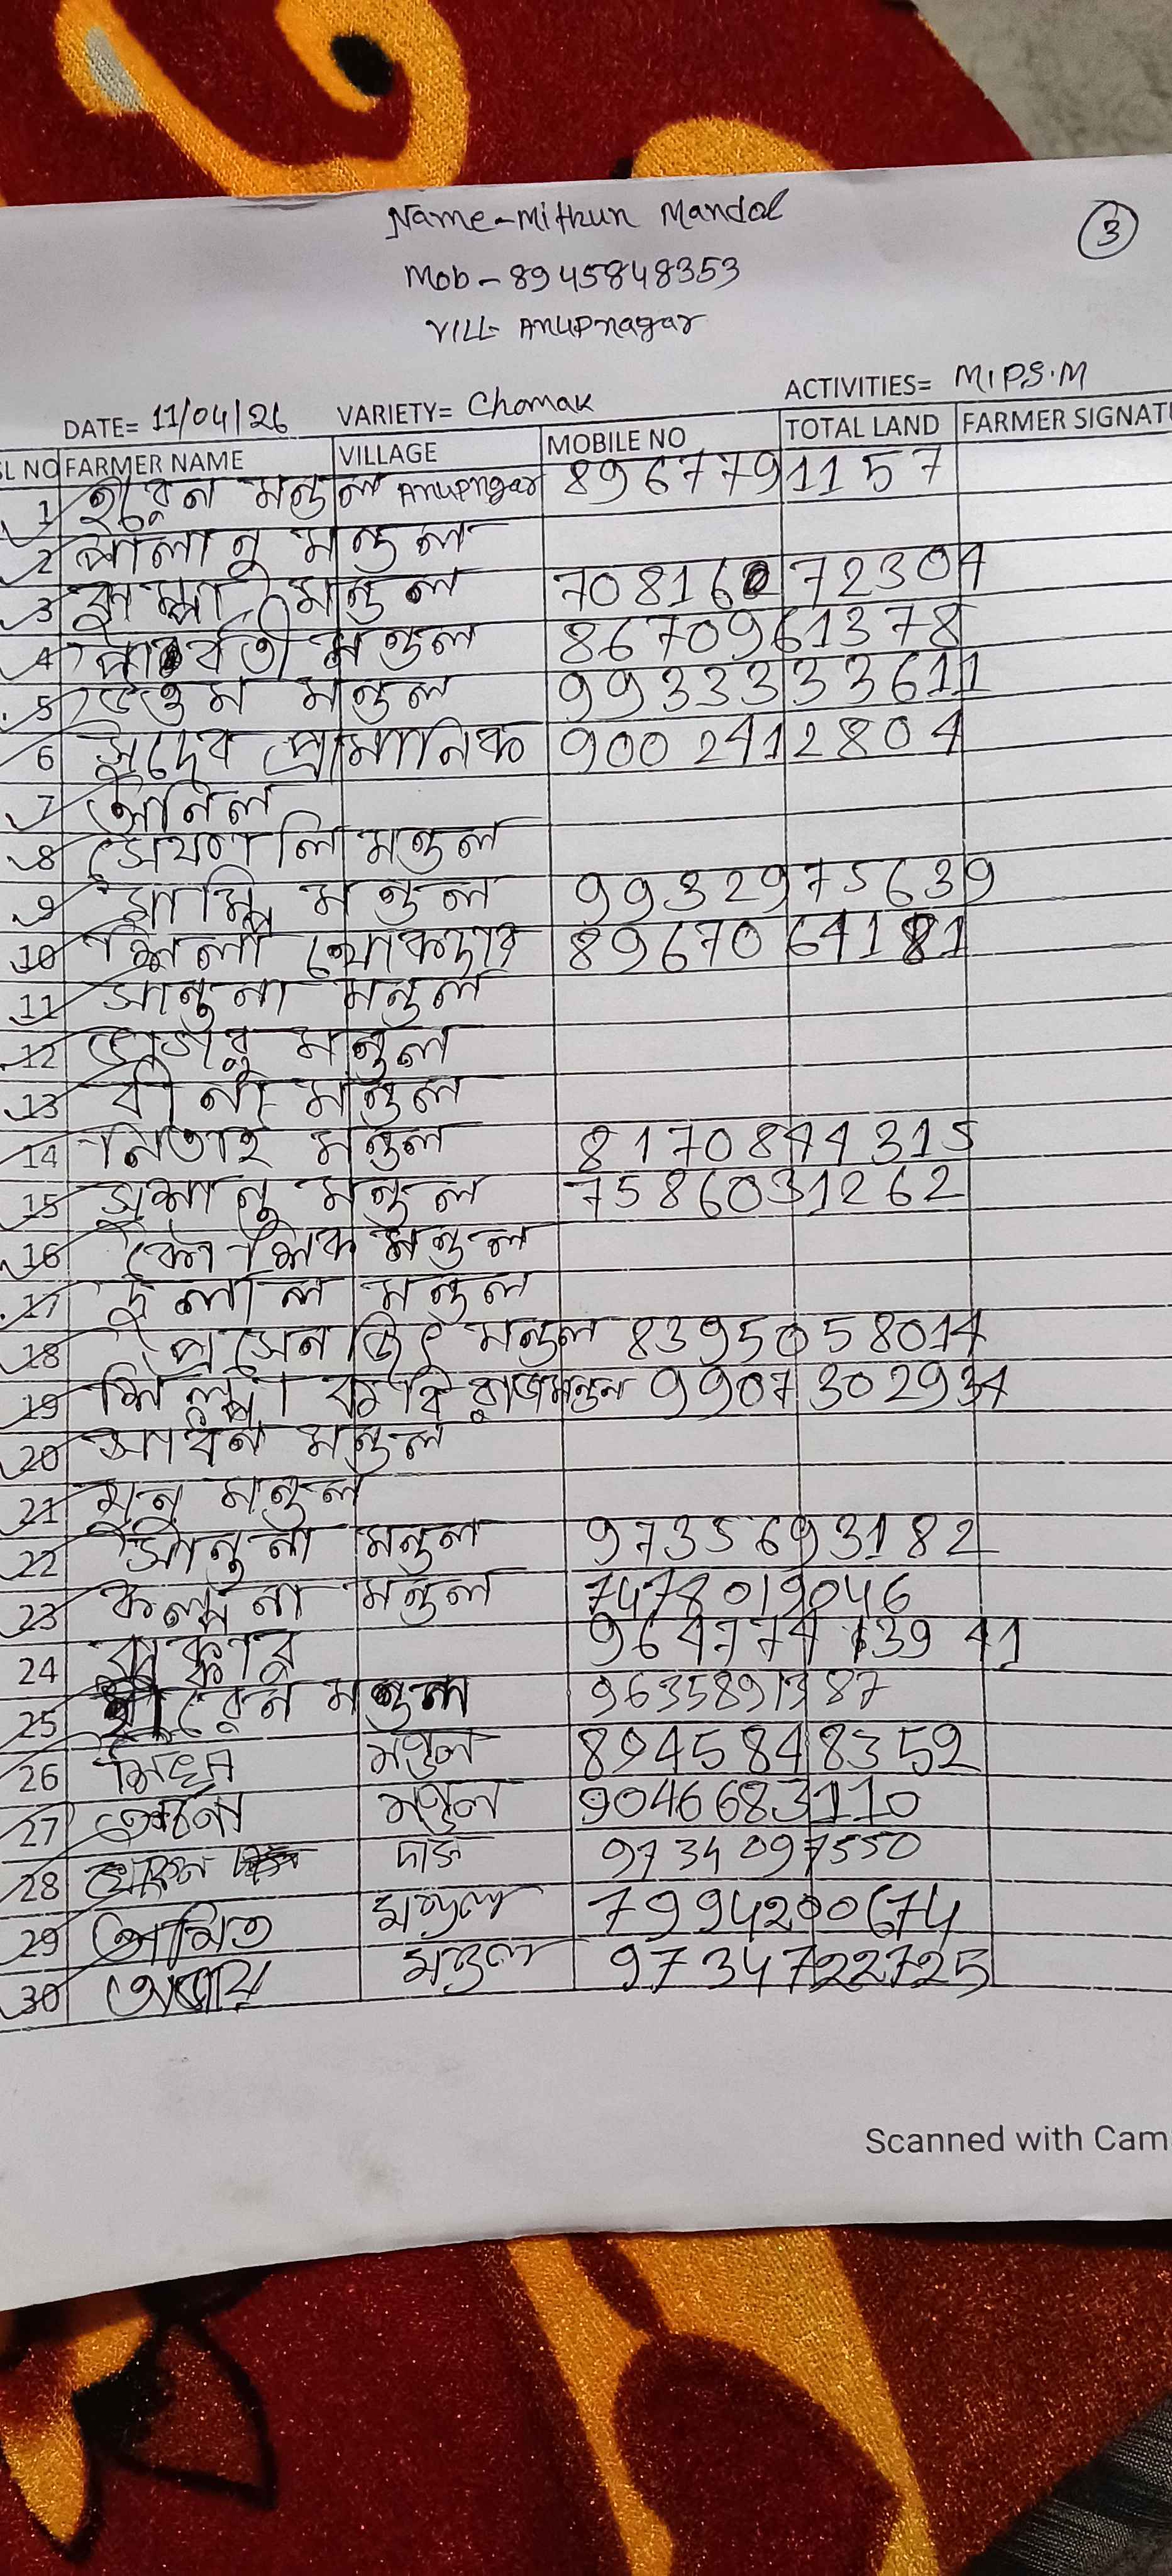 Name-Mithun Mandal
3
Mob-8945848353
VILL- Anupnagar
DATE= 11/04/26 VARIETY= Chamak ACTIVITIES= M.P.S.M
SL NO FARMER NAME VILLAGE MOBILE NO TOTAL LAND FARMER SIGNAT
1 হীরেন মন্ডল Anupngar 8967791157
2 মন্ডল
3 মন্ডল 7081672304
4 পার্বতী মন্ডল 8670961378
5 উত্তম মন্ডল 9933333611
6 সুদেব প্রামানিক 9002412804
7 অনিল
8 মন্ডল
9 মন্ডল 9932975639
10 শিলা 8967064181
11 সান্তনা মন্ডল
12 মন্ডল
13 বীনা মন্ডল
14 নিতাই মন্ডল 8170844315
15 সুশান্ত মন্ডল 7586031262
16 কৌশিক মন্ডল
17 দুলাল মন্ডল
18 প্রসেনজিৎ মন্ডল 8395058014
19 শিল্পা মন্ডল 9907302934
20 মন্ডল
21 মন্ডল
22 মন্ডল 9735693182
23 কল্পনা মন্ডল 7478019046
24
25 মন্ডল 9635891387
26 মিঠুন মন্ডল 8945848352
27 অর্চনা মন্ডল 9046683110
28 দাস 9734097550
29 অমিত মন্ডল 7994200674
30 অজয় মন্ডল 9734722725
Scanned with Cam